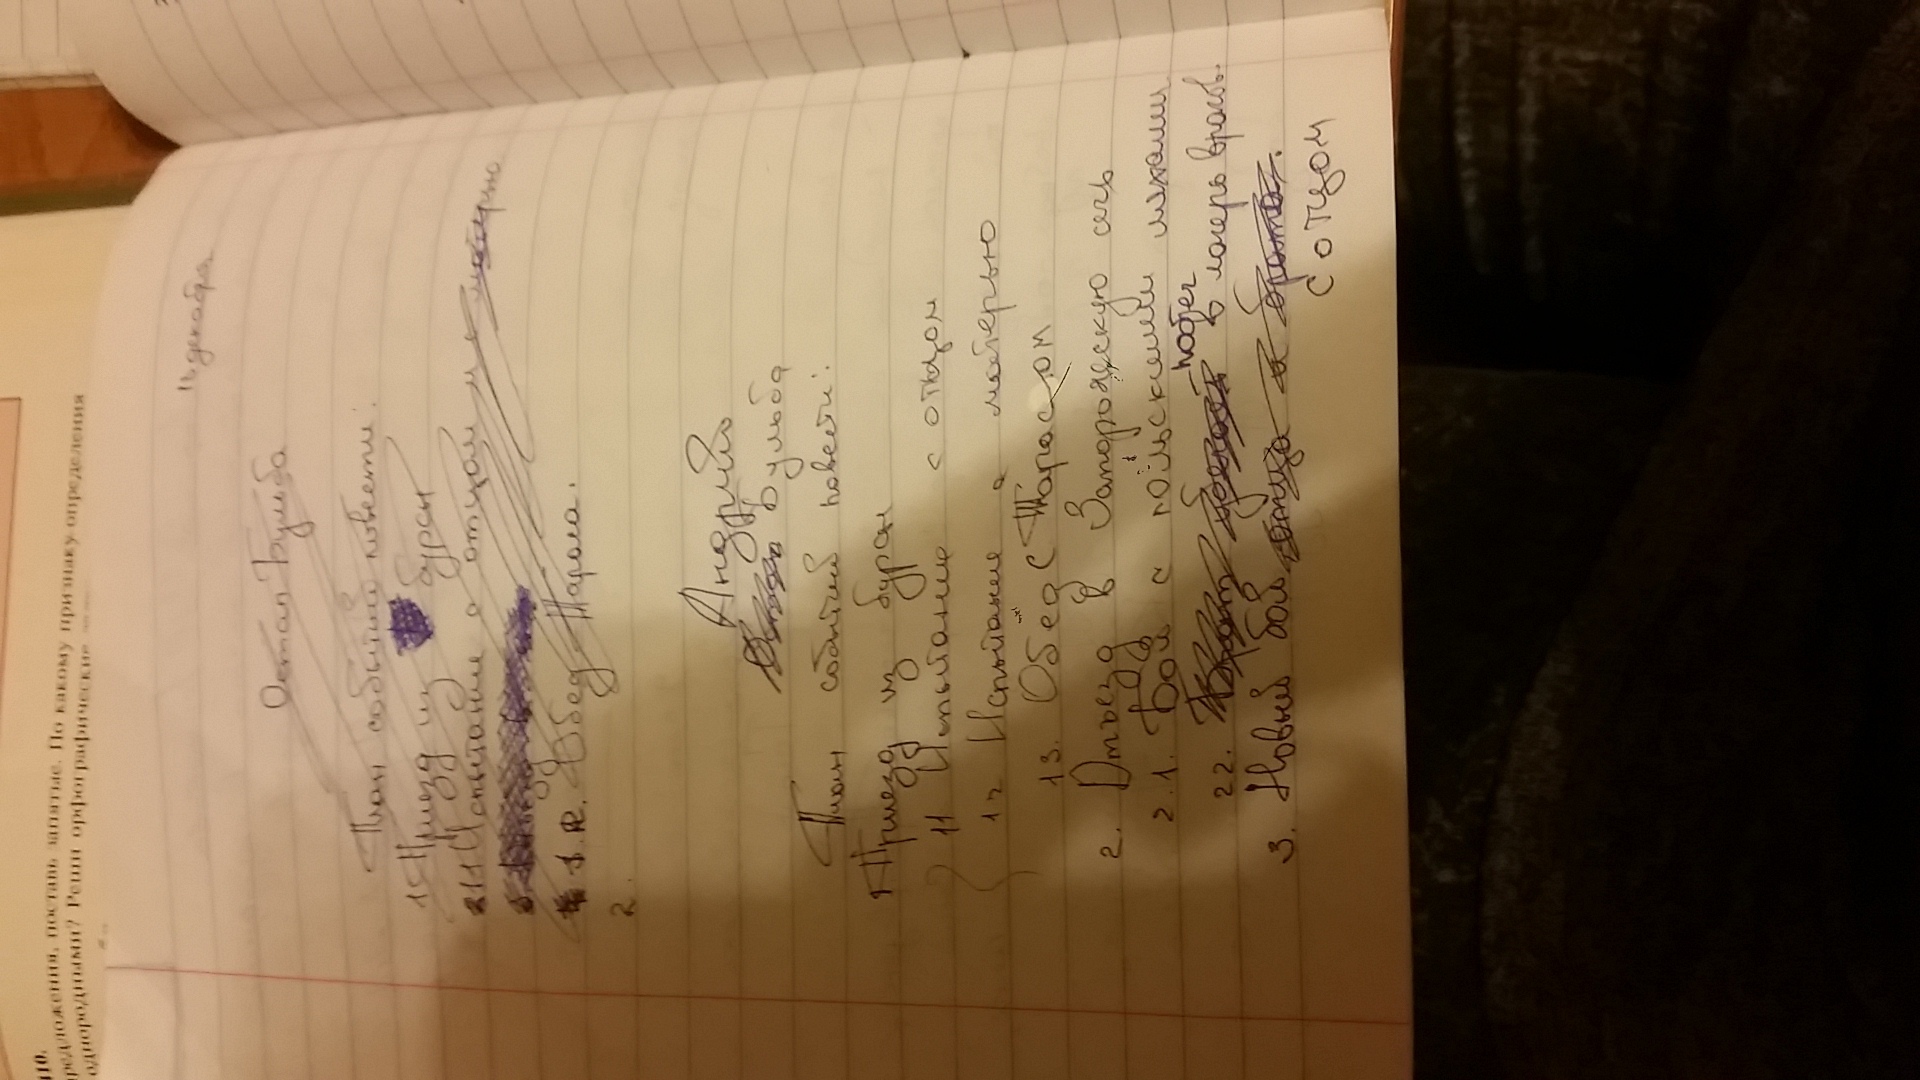 110.
предложения, поставь запятые. По какому признаку определения
однородными? Реши орфографические
декабря
Остап Бульба
План событий повести:
1 Приезд из бурсы
Испытание с отцом и с матерью
Обед Тараса.
2.
Андрий
Бульба
План событий повести:
1 Приезд из бурсы
11 Испытание с отцом
12 Испытание с матерью
13. Обед с Тарасом
2. Отъезд в Запорожскую сечь
2.1. Бой с польскими ляхами
22. побег в лагерь врагов.
3. Новый бой отца и брата.
с отцом